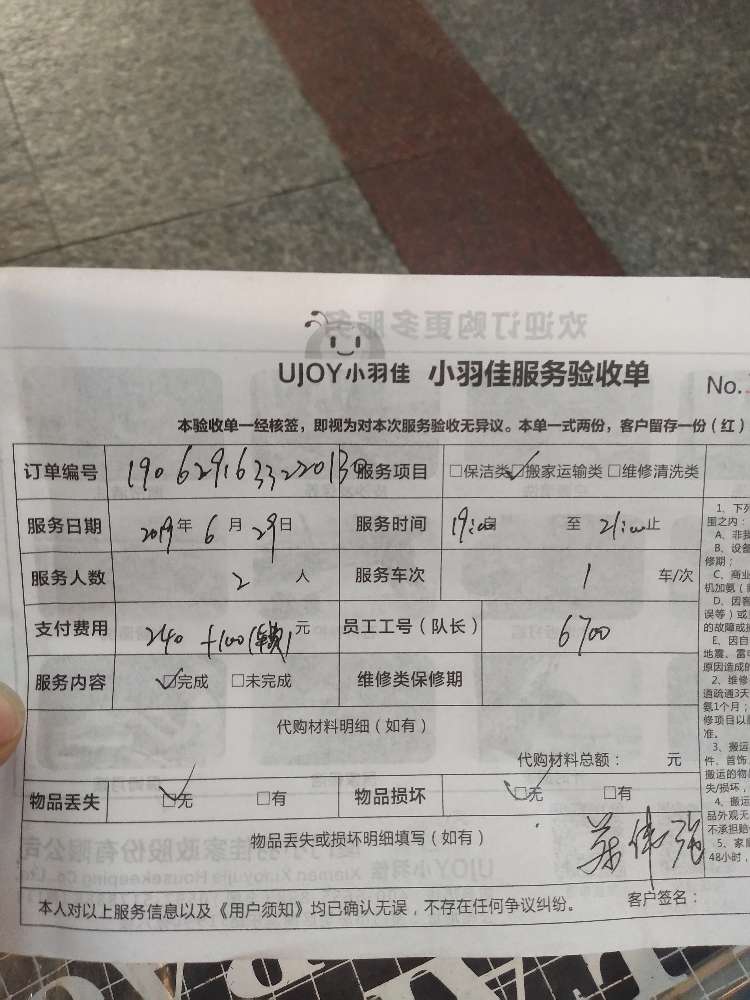 欢迎订购更多服务
UJOY小羽佳 小羽佳服务验收单 No.
本验收单一经核签，即视为对本次服务验收无异议。本单一式两份，客户留存一份（红）
订单编号 1906291633220130 服务项目 □保洁类 □搬家运输类 □维修清洗类
服务日期 2019年 6月 29日 服务时间 19:00自 至 21:00止
服务人数 2 人 服务车次 1 车/次
支付费用 240 +100 元 员工工号（队长） 6700
服务内容 ☑完成 □未完成 维修类保修期
代购材料明细（如有）
代购材料总额： 元
物品丢失 ☑无 □有 物品损坏 ☑无 □有
物品丢失或损坏明细填写（如有）
伟强
客户签名：
本人对以上服务信息以及《用户须知》均已确认无误，不存在任何争议纠纷。
1、下列
围之内：
A、非我
B、设备
修期；
C、商业
机加氨（
D、因客
误等）或
的故障或损
E、因自
地震、雷电
原因造成的
2、维修
道疏通3天
氨1个月；
修项目以
准。
3、搬运
件、首饰、
搬运的物
失/损坏，
4、搬运
品外观无
不承担赔
5、家
48小时，